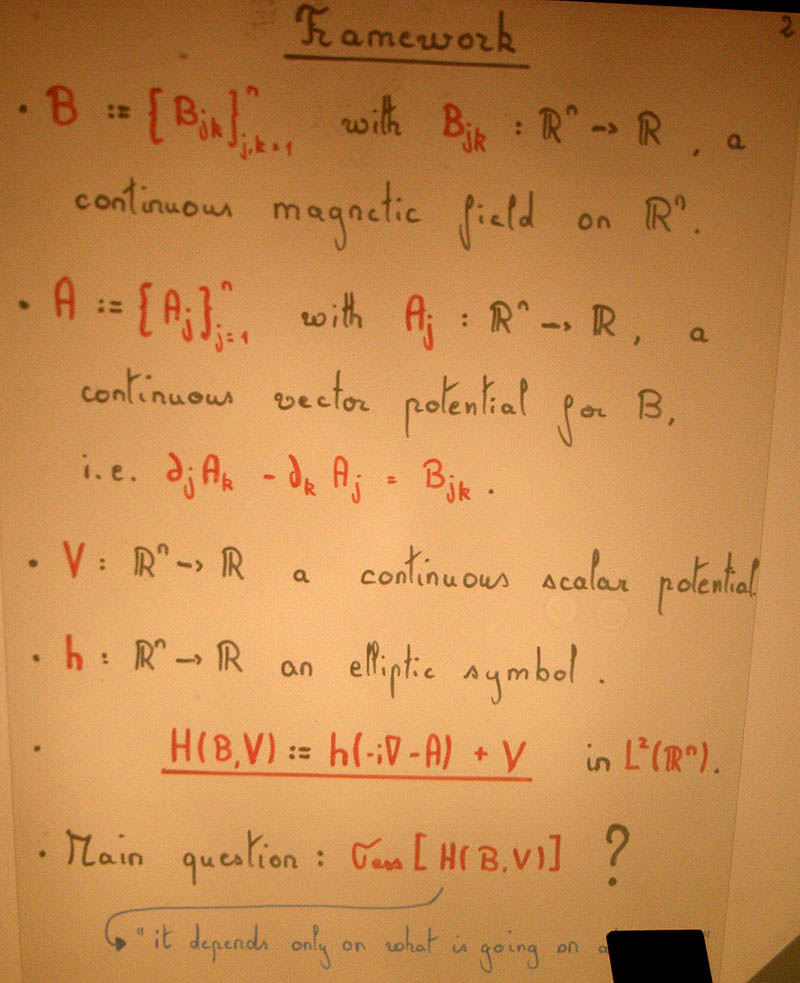 Framework
2
• B := {B_jk}^n_{j,k=1} with B_jk : ℝⁿ → ℝ, a
continuous magnetic field on ℝⁿ.
• A := {A_j}^n_{j=1} with A_j : ℝⁿ → ℝ, a
continuous vector potential for B,
i.e. ∂_j A_k - ∂_k A_j = B_jk.
• V : ℝⁿ → ℝ a continuous scalar potential.
• h : ℝⁿ → ℝ an elliptic symbol.
• H(B,V) := h(-i∇-A) + V in L²(ℝⁿ).
• Main question : σ_ess [H(B,V)] ?
"it depends only on what is going on "